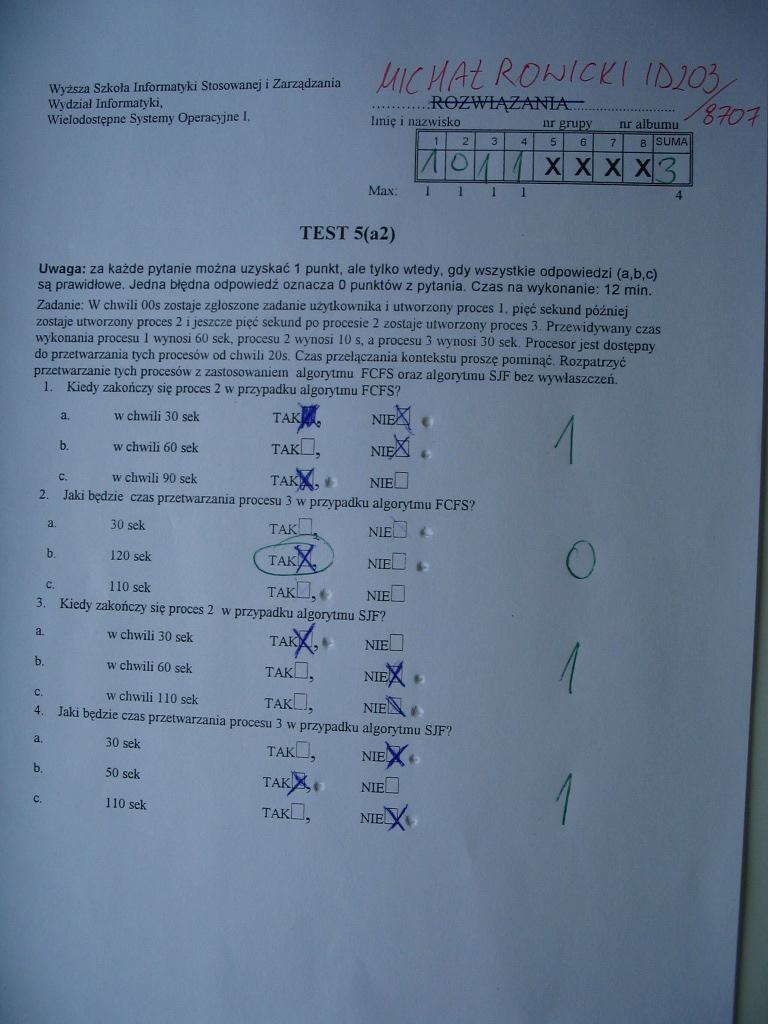 MICHAŁ ROWICKI ID203/8707
Wyższa Szkoła Informatyki Stosowanej i Zarządzania
Wydział Informatyki,
Wielodostępne Systemy Operacyjne I.
..........ROZWIĄZANIA..........
Imię i nazwisko nr grupy nr albumu
1 2 3 4 5 6 7 8 SUMA
1 0 1 1 X X X X 3
Max: 1 1 1 1 4
TEST 5(a2)
Uwaga: za każde pytanie można uzyskać 1 punkt, ale tylko wtedy, gdy wszystkie odpowiedzi (a,b,c)
są prawidłowe. Jedna błędna odpowiedź oznacza 0 punktów z pytania. Czas na wykonanie: 12 min.
Zadanie: W chwili 00s zostaje zgłoszone zadanie użytkownika i utworzony proces 1, pięć sekund później
zostaje utworzony proces 2 i jeszcze pięć sekund po procesie 2 zostaje utworzony proces 3. Przewidywany czas
wykonania procesu 1 wynosi 60 sek, procesu 2 wynosi 10 s, a procesu 3 wynosi 30 sek. Procesor jest dostępny
do przetwarzania tych procesów od chwili 20s. Czas przełączania kontekstu proszę pominąć. Rozpatrzyć
przetwarzanie tych procesów z zastosowaniem algorytmu FCFS oraz algorytmu SJF bez wywłaszczeń.
1. Kiedy zakończy się proces 2 w przypadku algorytmu FCFS?
a. w chwili 30 sek TAK, NIE
b. w chwili 60 sek TAK, NIE 1
c. w chwili 90 sek TAK, NIE
2. Jaki będzie czas przetwarzania procesu 3 w przypadku algorytmu FCFS?
a. 30 sek TAK, NIE
b. 120 sek TAK, NIE 0
c. 110 sek TAK, NIE
3. Kiedy zakończy się proces 2 w przypadku algorytmu SJF?
a. w chwili 30 sek TAK, NIE
b. w chwili 60 sek TAK, NIE 1
c. w chwili 110 sek TAK, NIE
4. Jaki będzie czas przetwarzania procesu 3 w przypadku algorytmu SJF?
a. 30 sek TAK, NIE
b. 50 sek TAK, NIE 1
c. 110 sek TAK, NIE